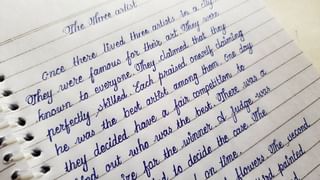 The Three artist
Once there lived three artists in a city
They were famous for their art. They were
known to everyone. They claimed that they
perfectly skilled. Each praised oneself claiming
he was the best artist among them. One day
they decided have a fair competition to
out who was the best. There was a
for the winner. A judge was
to decide the case. The
on time.
flowers. The second
painted